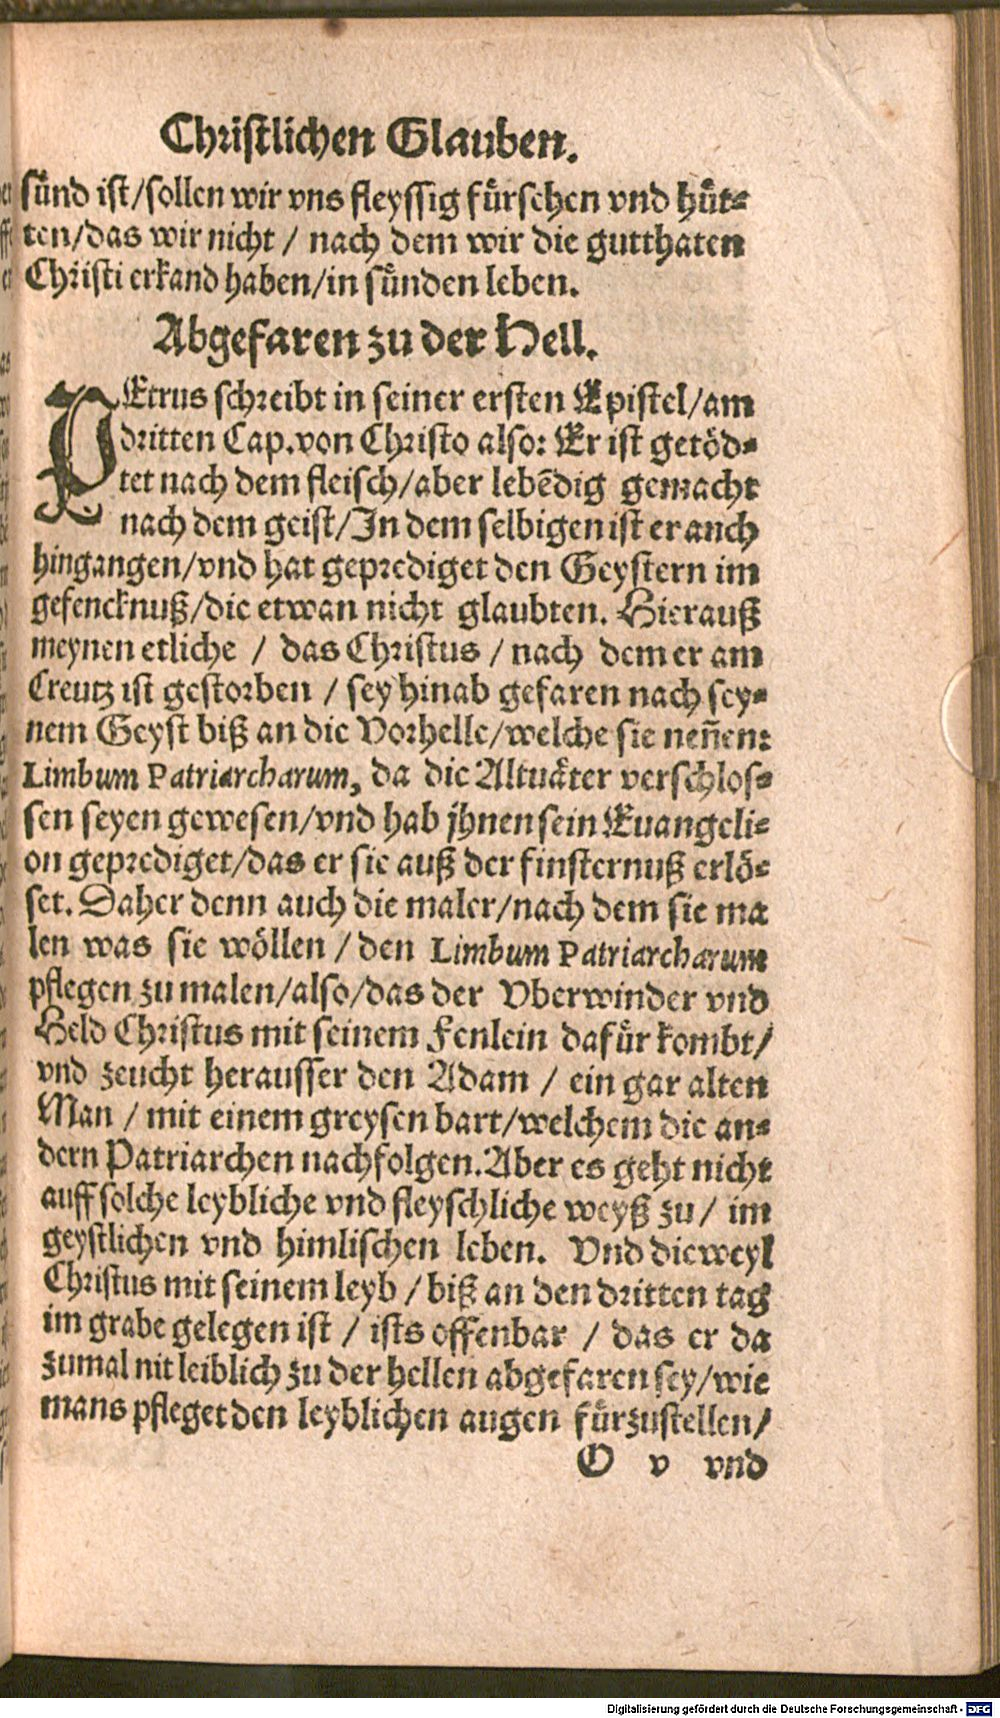 Christlichen Glauben.
sünd ist/sollen wir vns fleyssig fürsehen vnd hüt-
ten/das wir nicht / nach dem wir die gutthaten
Christi erkand haben/in sünden leben.
Abgefaren zu der Hell.
PEtrus schreibt in seiner ersten Epistel/am
dritten Cap.von Christo also: Er ist getöd-
tet nach dem fleisch/aber lebẽdig gemacht
nach dem geist/In dem selbigen ist er auch
hingangen/vnd hat geprediget den Geystern im
gefencknuß/die etwan nicht glaubten. Hierauß
meynen etliche / das Christus / nach dem er am
Creutz ist gestorben / sey hinab gefaren nach sey-
nem Geyst biß an die Vorhelle/welche sie neñen:
Limbum Patriarcharum, da die Altuäter verschlos-
sen seyen gewesen/vnd hab jhnen sein Euangeli-
on geprediget/das er sie auß der finsternuß erlö-
set. Daher denn auch die maler/nach dem sie ma
len was sie wöllen / den Limbum Patriarcharum
pflegen zu malen/also/das der Vberwinder vnd
Held Christus mit seinem Fenlein dafür kombt/
vnd zeucht herausser den Adam / ein gar alten
Man / mit einem greysen bart/welchem die an-
dern Patriarchen nachfolgen. Aber es geht nicht
auff solche leybliche vnd fleyschliche weyß zu / im
geystlichen vnd himlischen leben. Vnd dieweyl
Christus mit seinem leyb / biß an den dritten tag
im grabe gelegen ist / ists offenbar / das er da
zumal nit leiblich zu der hellen abgefaren sey/wie
mans pfleget den leyblichen augen fürzustellen/
O v vnd
Digitalisierung gefördert durch die Deutsche Forschungsgemeinschaft - DFG